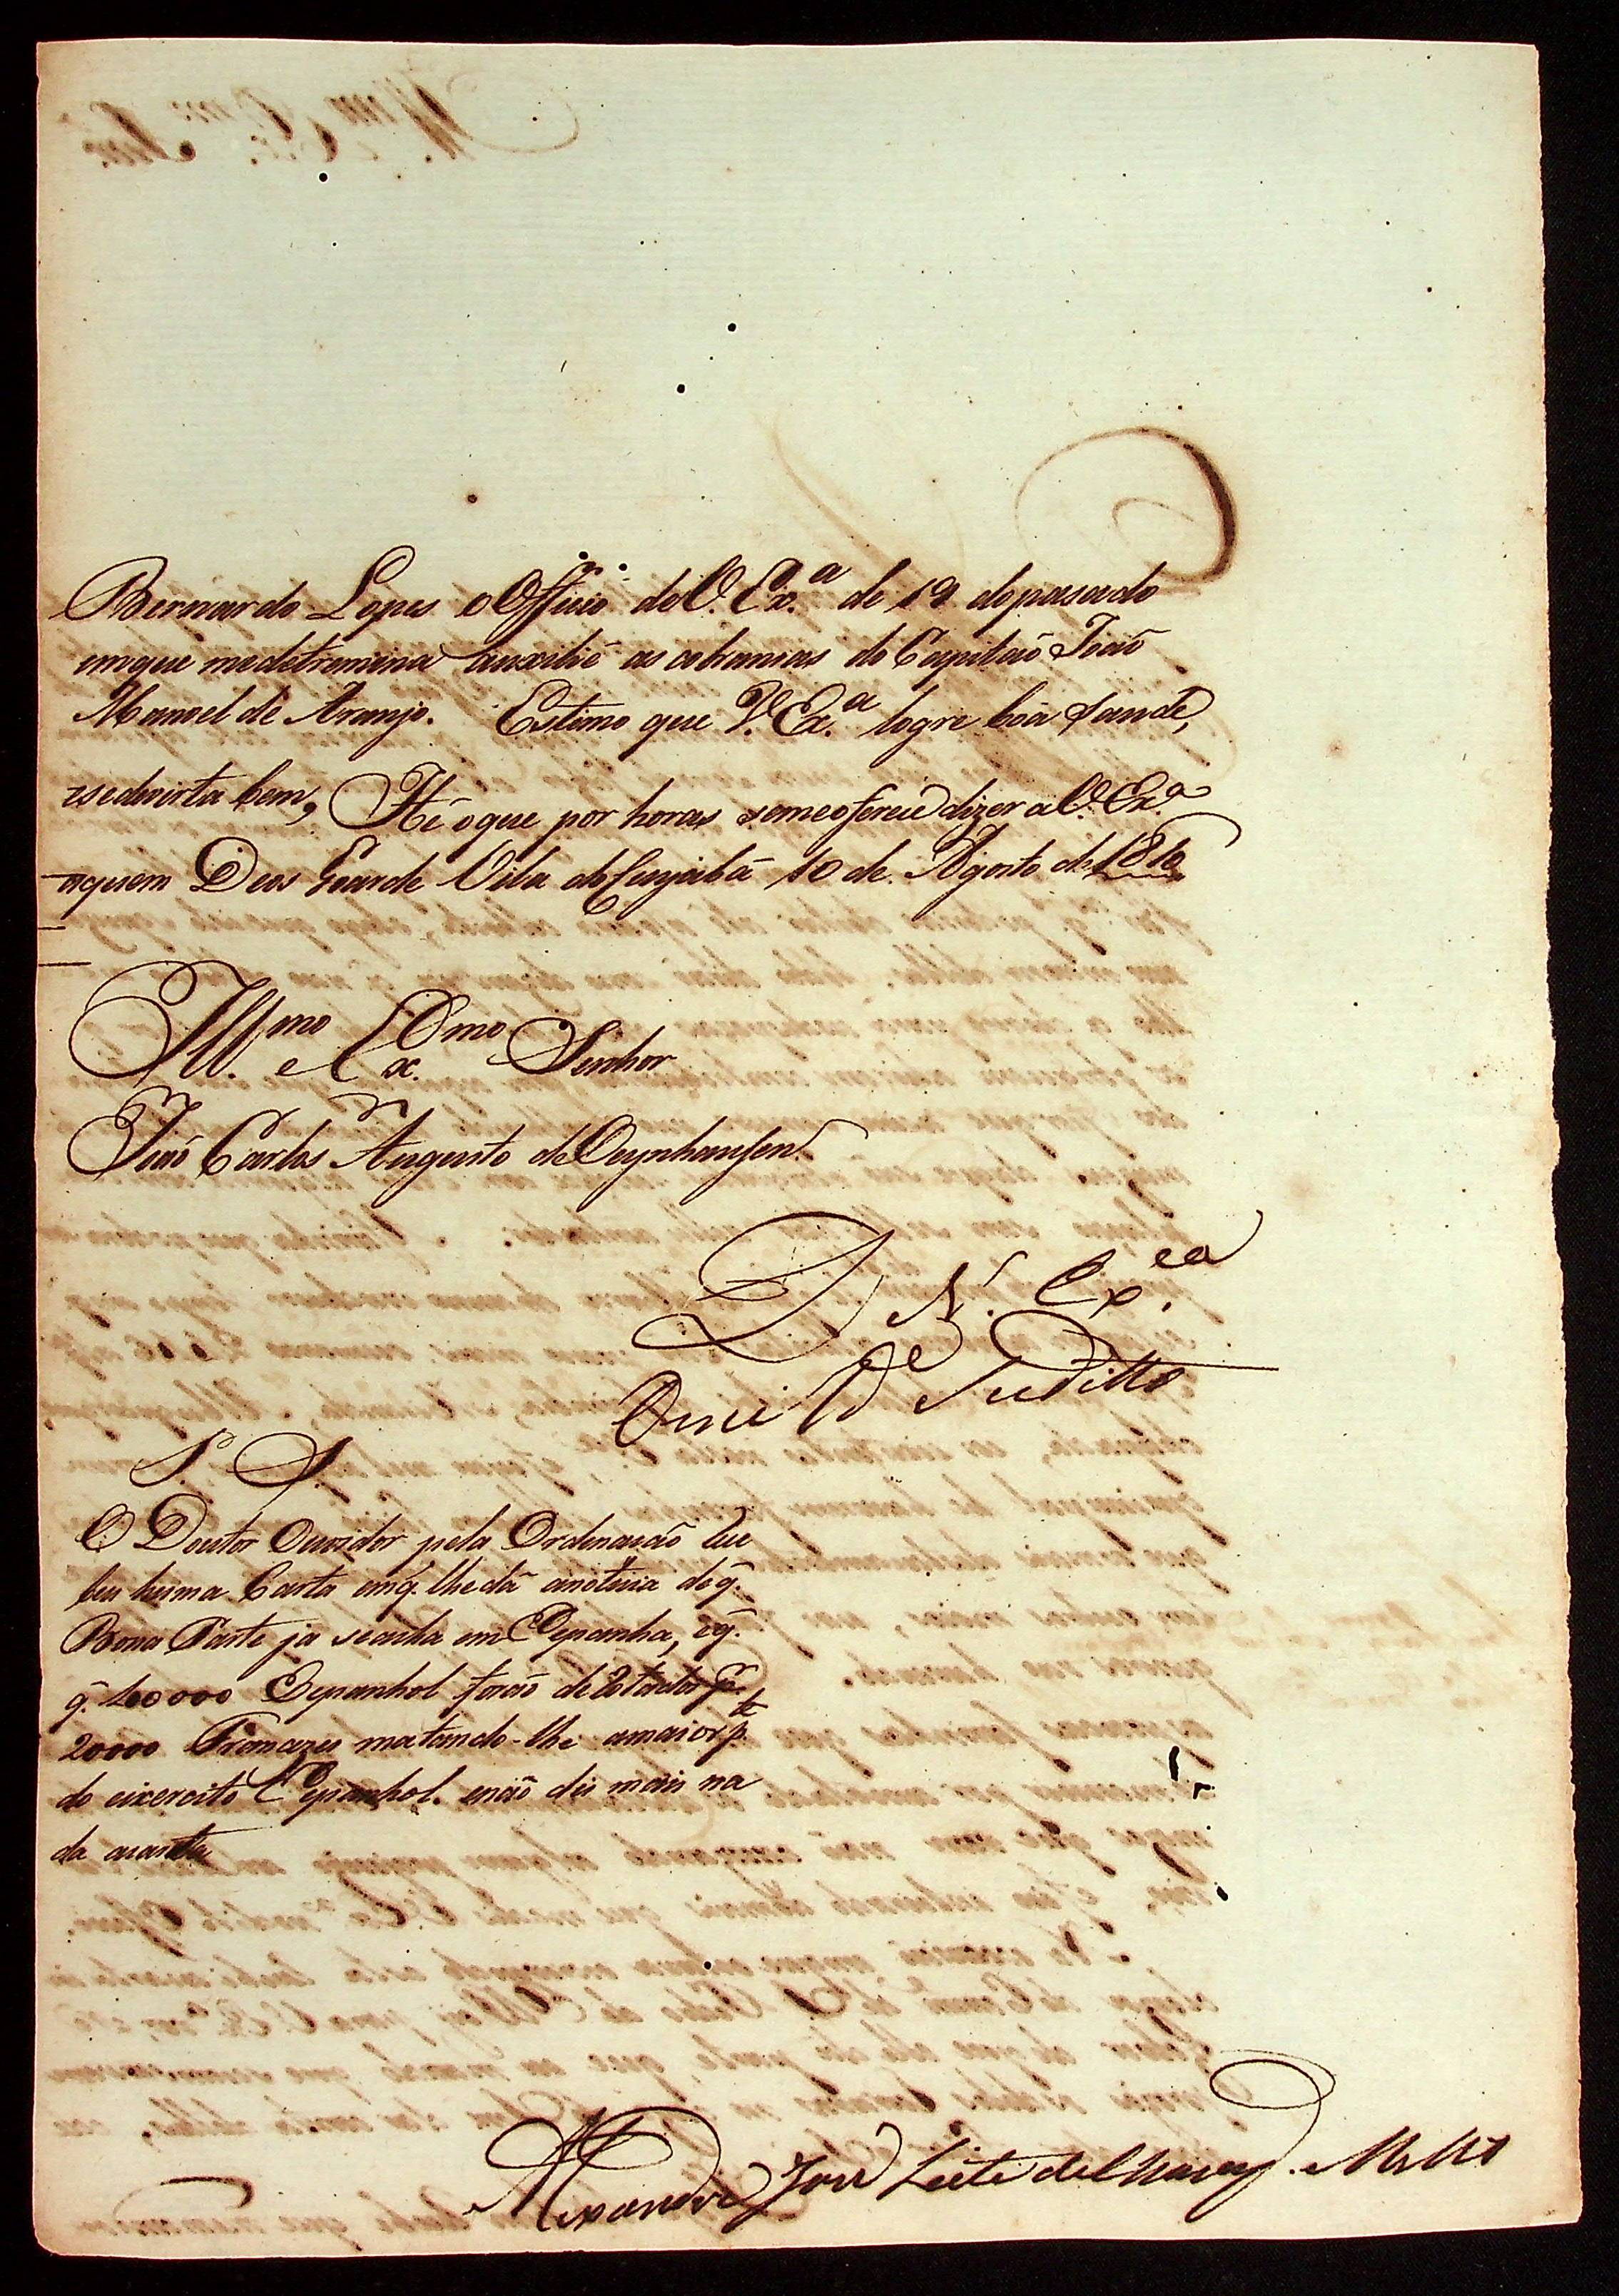 Bernardo Lopes o Officio de V. Ex.ª de 19 do pasado
em que me detremina auxilie as cobransas do Capitaõ Joaõ
Manoel de Araujo. Estimo que V. Ex.ª logre boa saude,
e se devirta bem, Hé o que por horas se me oferece dizer a V. Ex.ª
a quem Deos Guarde Vila do Cuyabá 10 de Agosto de 1810
Ill.mo e Ex.mo Senhor
Joaõ Carlos Augusto de Oeynhausen
D V. Ex.cia
Omi De Subdito
P. S.
O Doutor Ouvidor pela Ordenasaõ
huma Carta em q. lhe dá a noticia de q.
Bona Parte ja se acha em Espanha, e q.
q. 100000 Espanhol foraõ derotados p.r
20000 Francezes matando-lhe a maior p.te
do eixercito Espanhol. e naõ dis mais na
da
Alexandre José Leite de Chaves e Mello